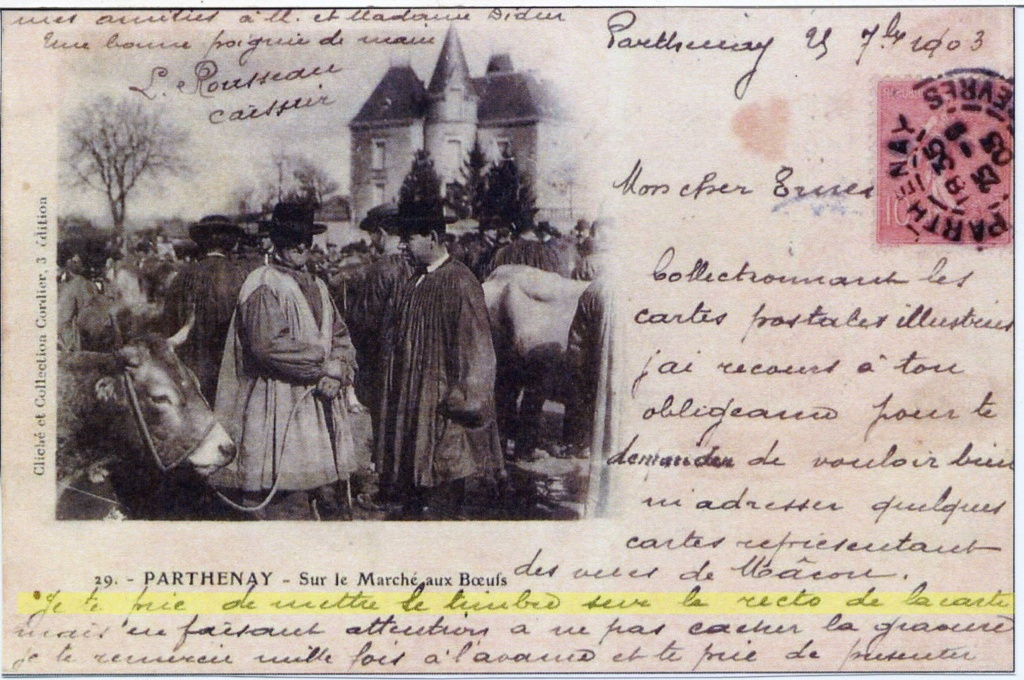 Parthenay 25 7bre 1903
Mon cher Ernest
Collectionnant les
cartes postales illustrées
j'ai recours à ton
obligeance pour te
demander de vouloir bien
m'adresser quelques
cartes représentant
des vues de Mâcon.
Je te prie de mettre le timbre sur le recto de la carte
mais en faisant attention à ne pas cacher la gravure
je te remercie mille fois à l'avance et te prie de présenter
mes amitiés à M. et Madame Didier
Une bonne poignée de main
L. Rousseau
caissier
Cliché et Collection Cordier, 3 édition
29. - PARTHENAY - Sur le Marché aux Bœufs
PARTHENAY
SEVRES
18 35
25 -9
03
10